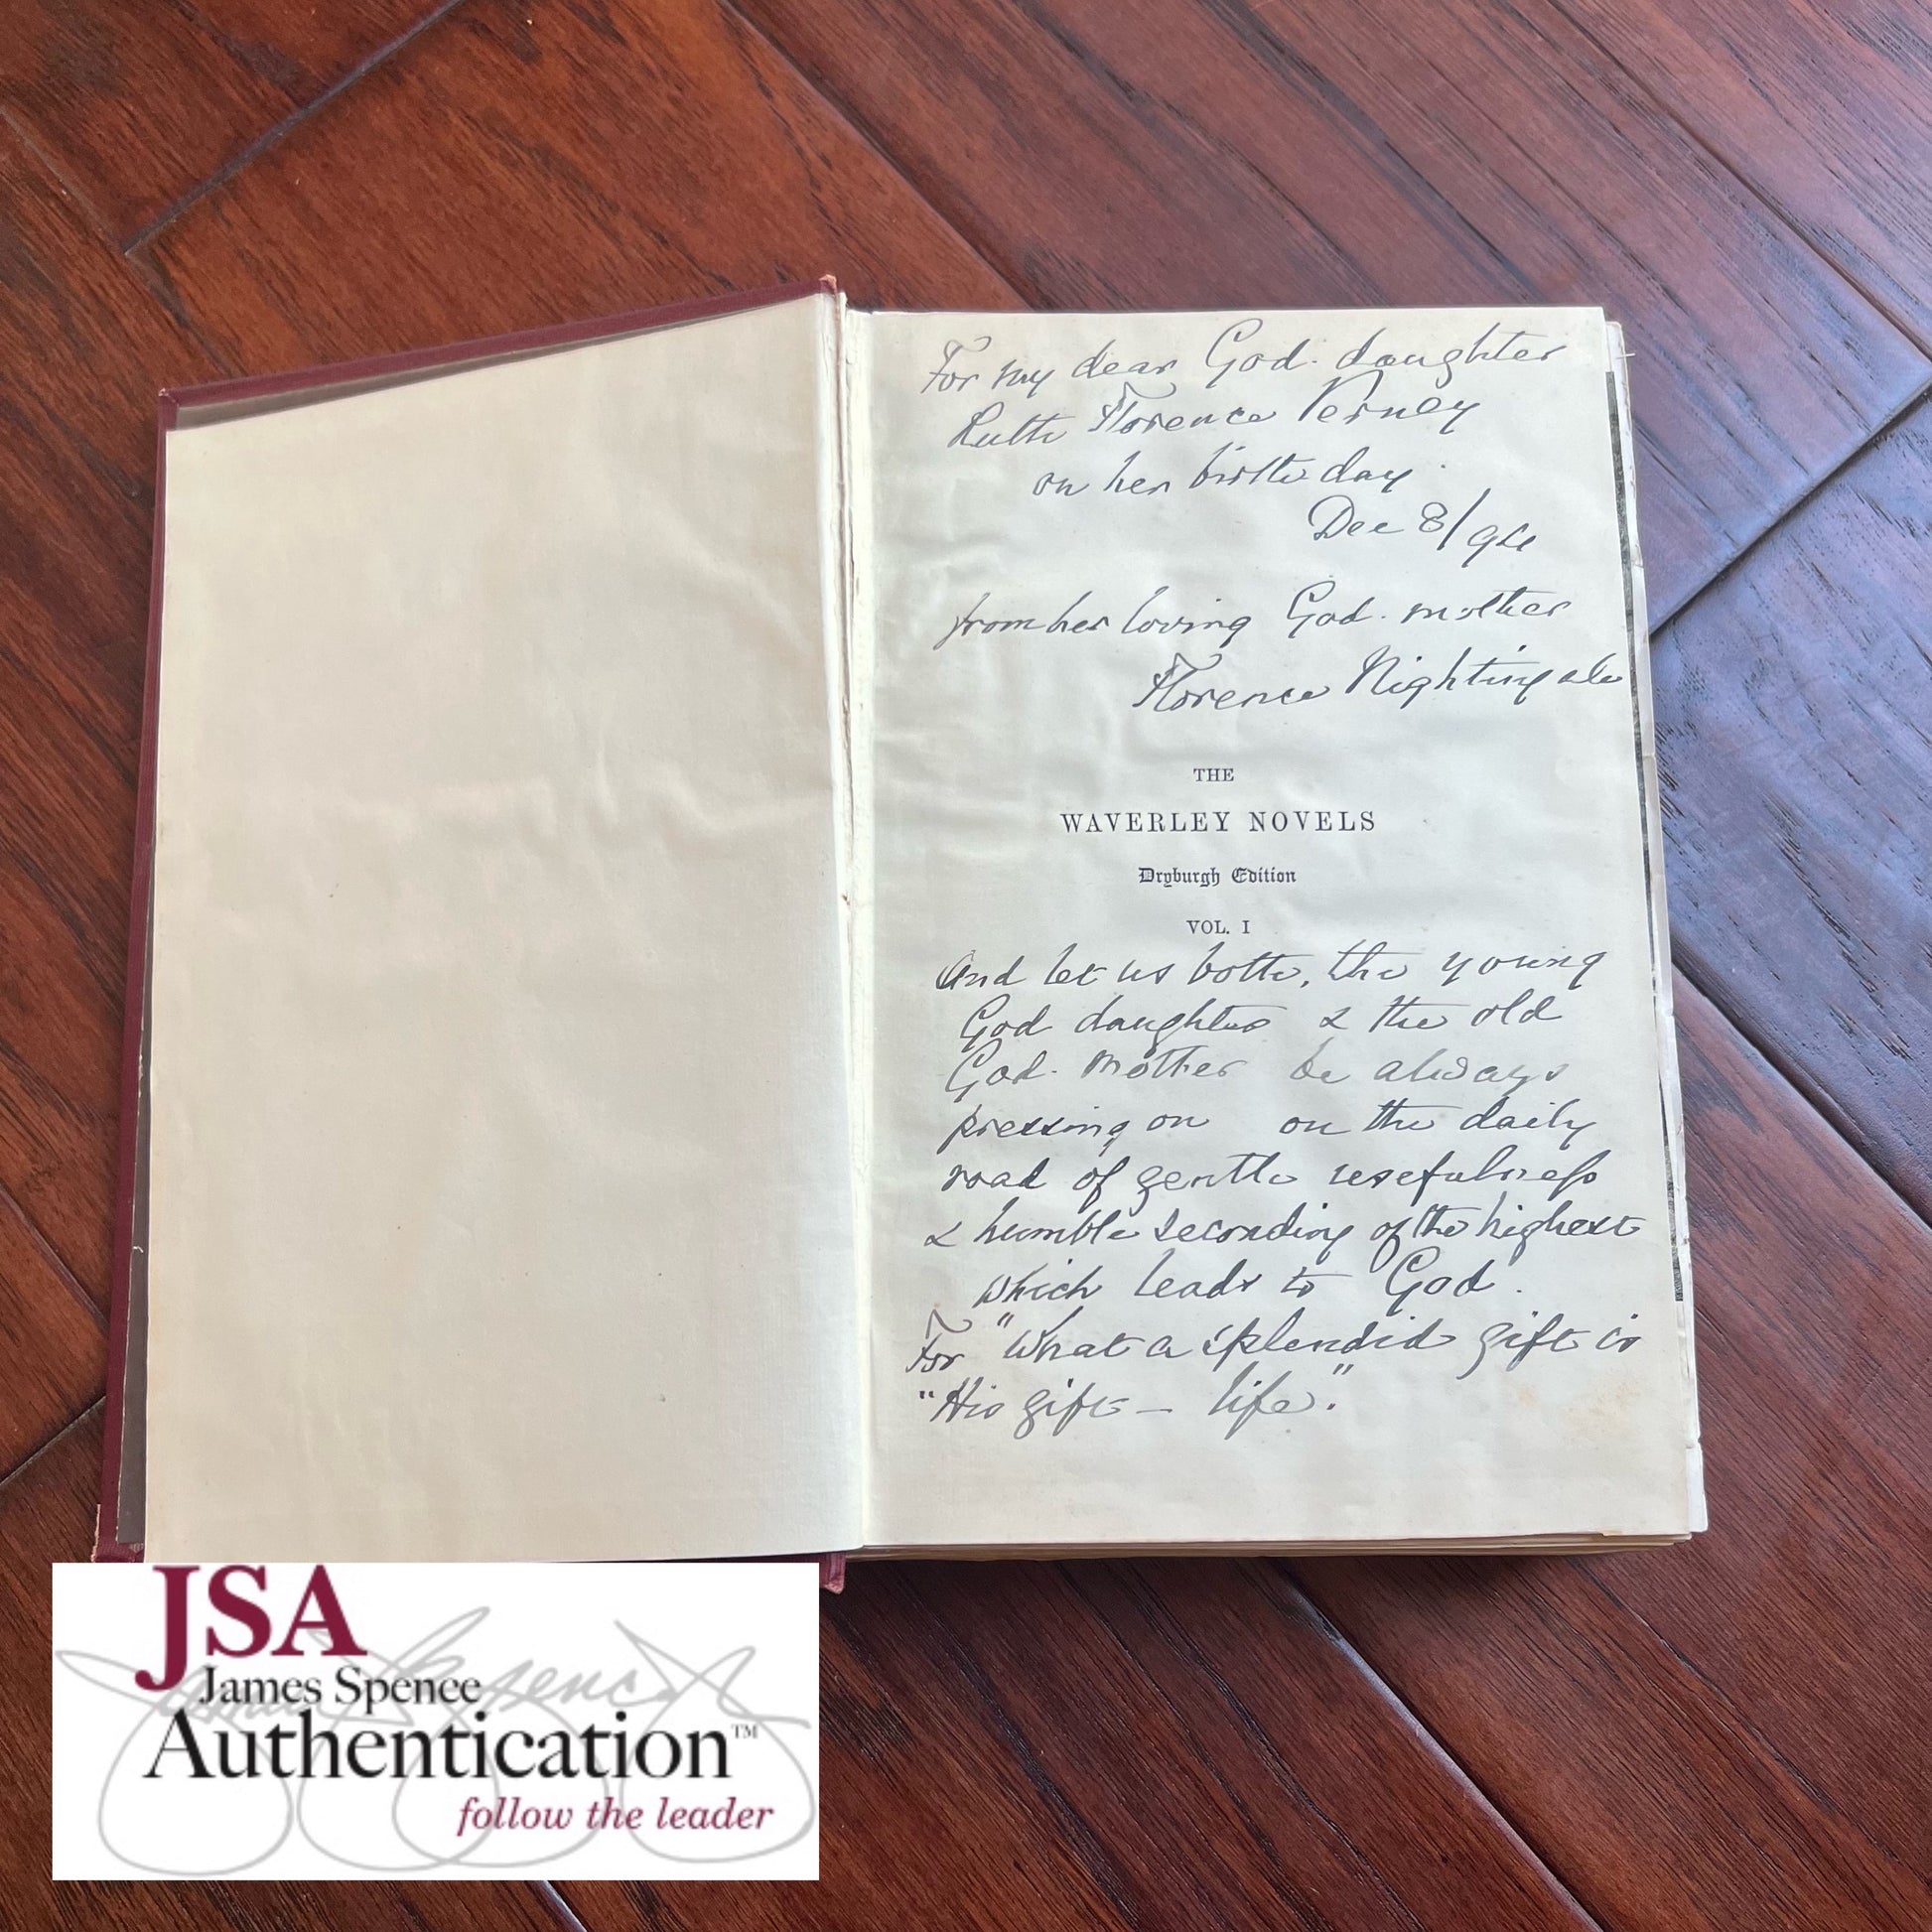 For my dear God-daughter
Ruth Florence Verney
on her birthday
Dec 8/94
from her loving God-mother
Florence Nightingale
THE
WAVERLEY NOVELS
Dryburgh Edition
VOL. I
And let us both, the young
God daughter & the old
God-mother be always
pressing on on the daily
road of gentle usefulness
& humble seconding of the highest
which leads to God.
For "What a splendid gift is
"His gift – life."
JSA
James Spence
Authentication™
follow the leader